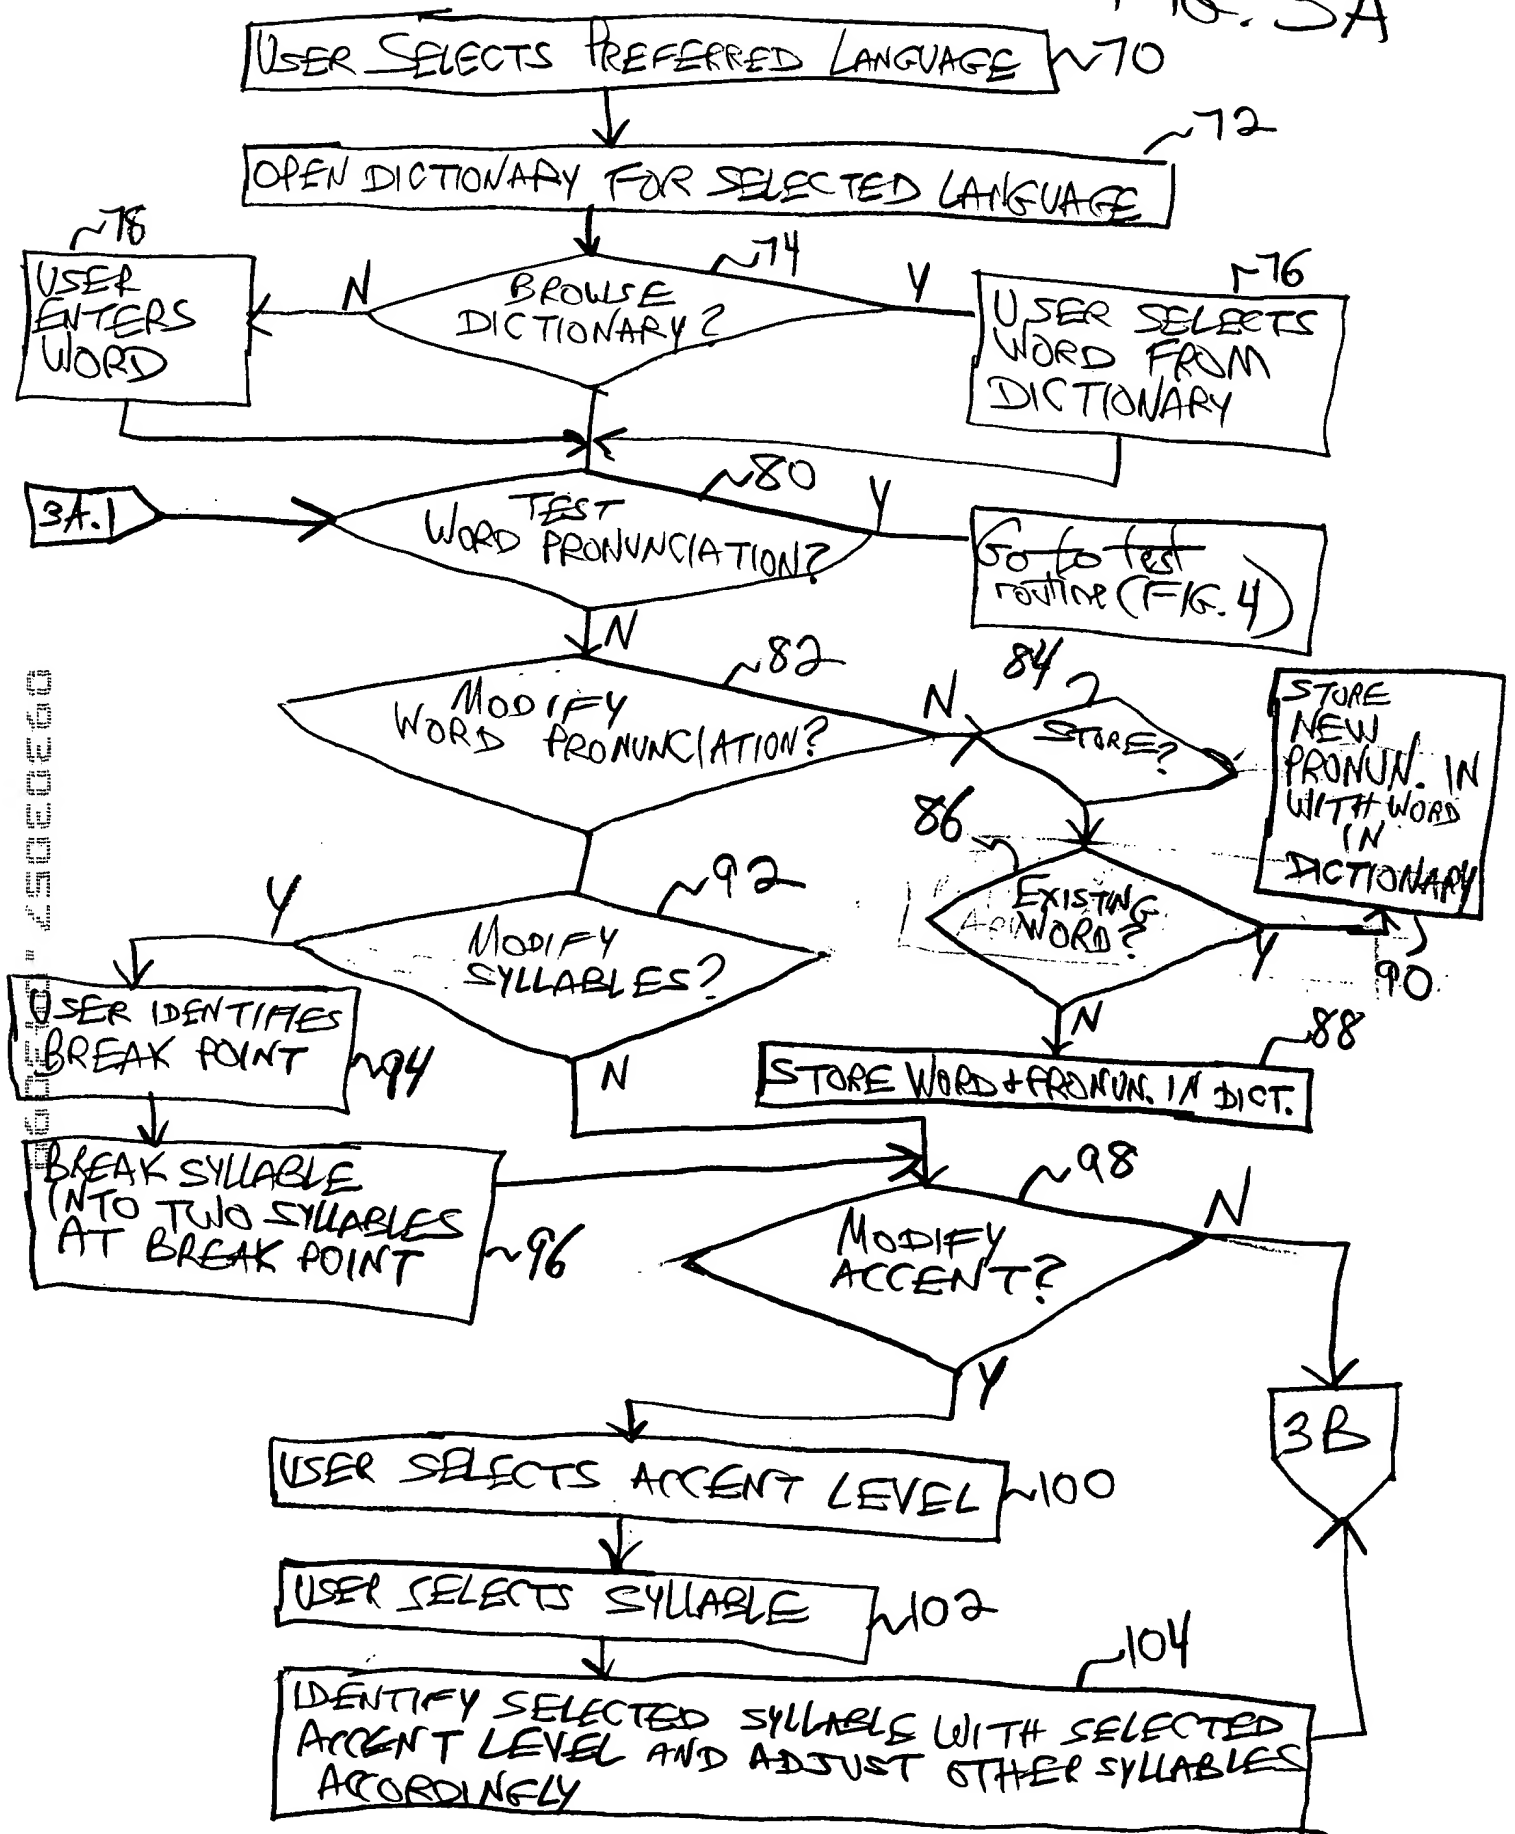 FIG. 3A
USER SELECTS PREFERRED LANGUAGE
70
72
OPEN DICTIONARY FOR SELECTED LANGUAGE
78
74
76
USER
ENTERS
WORD
N
BROWSE
DICTIONARY?
Y
USER SELECTS
WORD FROM
DICTIONARY
80
3A.1
TEST
WORD PRONUNCIATION?
Y
Go to test
routine (FIG. 4)
N
82
84
MODIFY
WORD PRONUNCIATION?
N
STORE?
STORE
NEW
PRONUN. IN
WITH WORD
IN
DICTIONARY
86
90
EXISTING
WORD?
Y
N
88
STORE WORD + PRONUN. IN DICT.
92
Y
MODIFY
SYLLABLES?
N
USER IDENTIFIES
BREAK POINT
94
BREAK SYLLABLE
INTO TWO SYLLABLES
AT BREAK POINT
96
98
MODIFY
ACCENT?
N
Y
3B
USER SELECTS ACCENT LEVEL
100
USER SELECTS SYLLABLE
102
104
IDENTIFY SELECTED SYLLABLE WITH SELECTED
ACCENT LEVEL AND ADJUST OTHER SYLLABLES
ACCORDINGLY